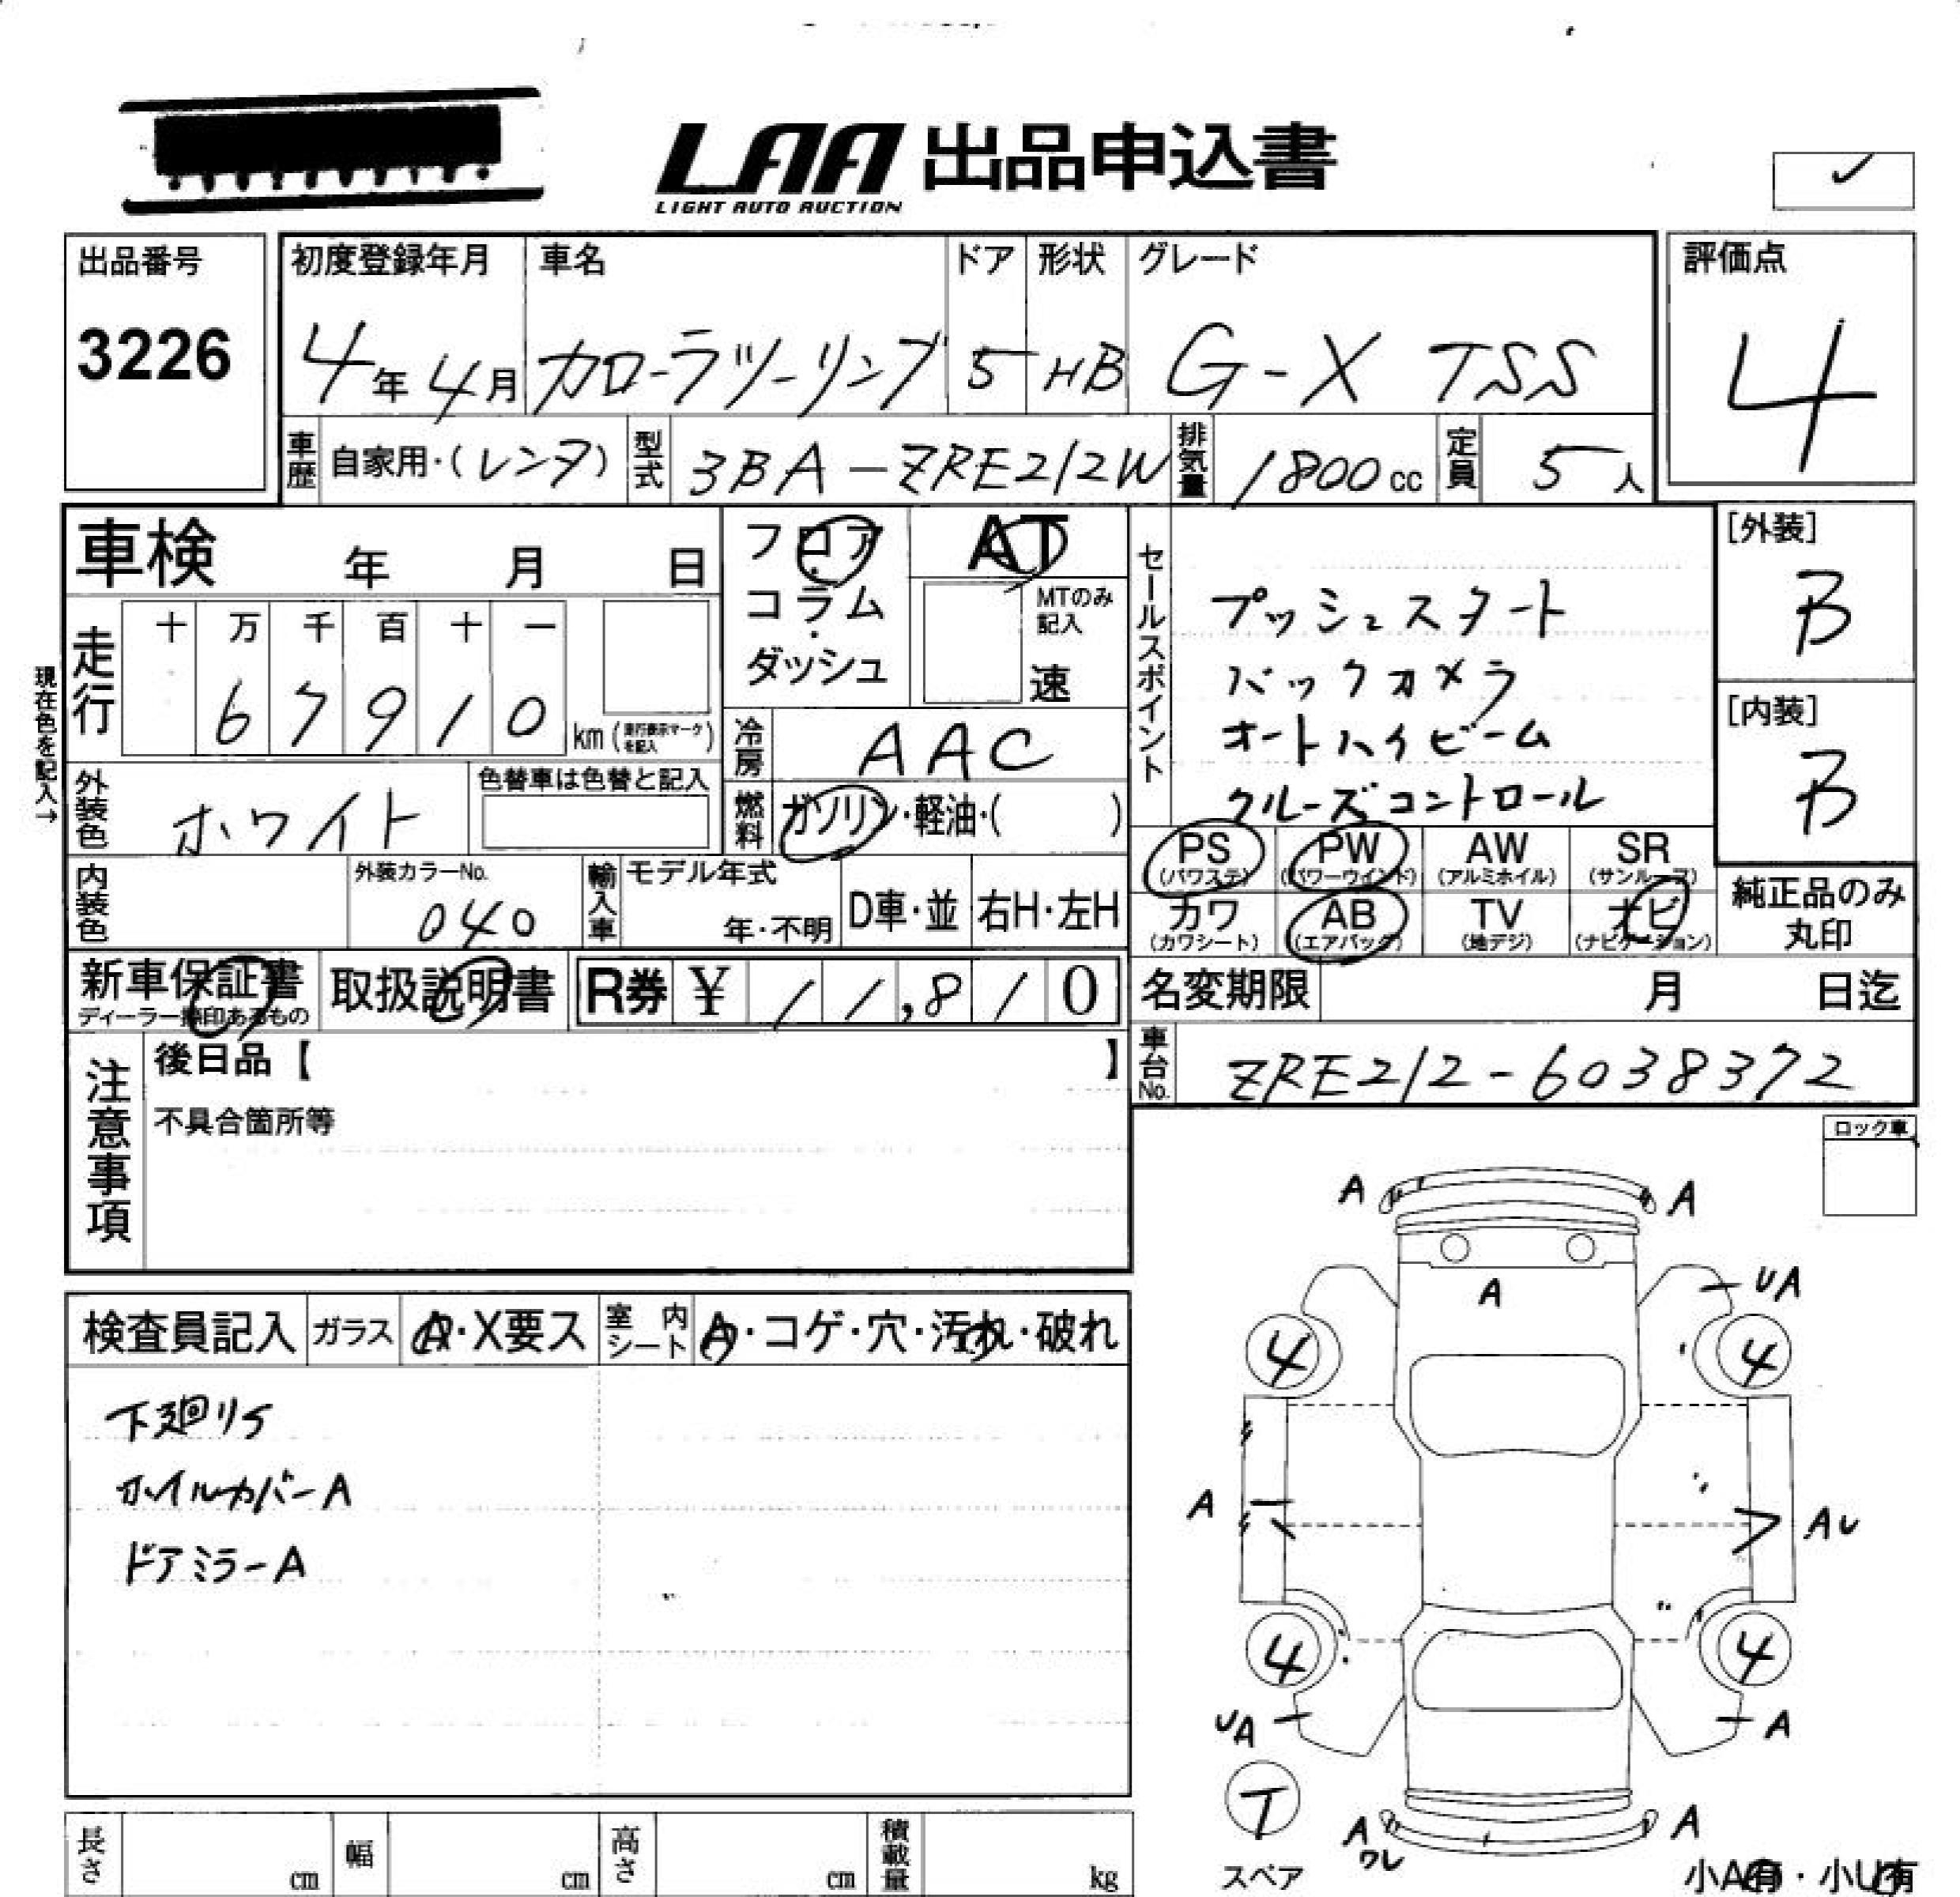 LAA 出品申込書
LIGHT AUTO AUCTION
出品番号
3226
初度登録年月
4年4月
車名
カローラツーリング
ドア
5
形状
HB
グレード
G-X TSS
評価点
4
車歴 自家用・(レンタ)
型式 3BA-ZRE212W
排気量 1800cc
定員 5人
車検 年 月 日
フロア・コラム・ダッシュ
AT
MTのみ記入
速
セールスポイント
プッシュスタート
バックカメラ
オートハイビーム
クルーズコントロール
[外装]
B
[内装]
B
現在色を記入→
走行
十 万 千 百 十 一
6 7 9 1 0 km (走行表示マークを記入)
冷房 AAC
外装色 ホワイト
色替車は色替と記入
燃料 ガソリン・軽油・( )
PS (パワステ)
PW (パワーウインド)
AW (アルミホイル)
SR (サンルーフ)
カワ (カワシート)
AB (エアバッグ)
TV (地デジ)
ナビ (ナビゲーション)
純正品のみ丸印
内装色
外装カラーNo.
040
輸入車
モデル年式
年・不明
D車・並
右H・左H
新車保証書
ディーラー捺印あるもの
取扱説明書
R券 ¥ 11,810
名変期限 月 日迄
車台No. ZRE212-6038372
注意事項
後日品【 】
不具合箇所等
ロック車
検査員記入
ガラス A・X要ス
室内シート A・コゲ・穴・汚れ・破れ
下廻りS
ホイルカバーA
ドアミラーA
A A
A UA
4 4
A AU
4 4
UA A
T
スペア
A ワレ A
小A有・小U有
長さ cm
幅 cm
高さ cm
積載量 kg